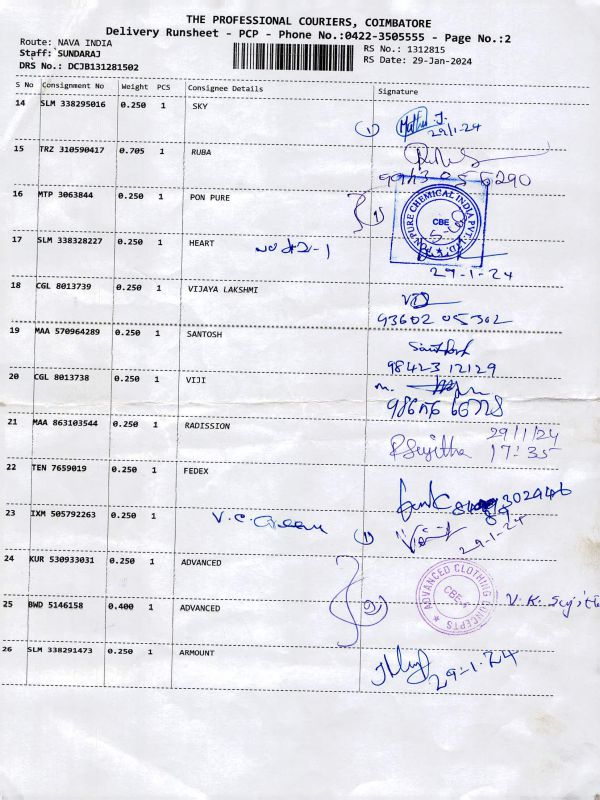 THE PROFESSIONAL COURIERS, COIMBATORE
Delivery Runsheet - PCP - Phone No.:0422-3505555 - Page No.:2
Route: NAVA INDIA
Staff: SUNDARAJ
DRS No.: DCJB131281502
RS No.: 1312815
RS Date: 29-Jan-2024
S No Consignment No Weight PCS Consignee Details Signature
14 SLM 338295016 0.250 1 SKY
1 29/1-24
15 TRZ 310590417 0.705 1 RUBA
16 MTP 3063844 0.250 1 PON PURE
PON PURE CHEMICAL INDIA PVT. LTD. CBE
17 SLM 338328227 0.250 1 HEART
29-1-24
18 CGL 8013739 0.250 1 VIJAYA LAKSHMI
93602 05302
19 MAA 570964289 0.250 1 SANTOSH
98423 12129
20 CGL 8013738 0.250 1 VIJI
21 MAA 863103544 0.250 1 RADISSION
29/1/24
P Sujitha 17:35
22 TEN 7659019 0.250 1 FEDEX
23 IXM 505792263 0.250 1 V.C. Green
1 29-1-24
24 KUR 530933031 0.250 1 ADVANCED
ADVANCED CLOTHING CONCEPTS
25 BWD 5146158 0.400 1 ADVANCED
2
26 SLM 338291473 0.250 1 ARMOUNT
29-1-24